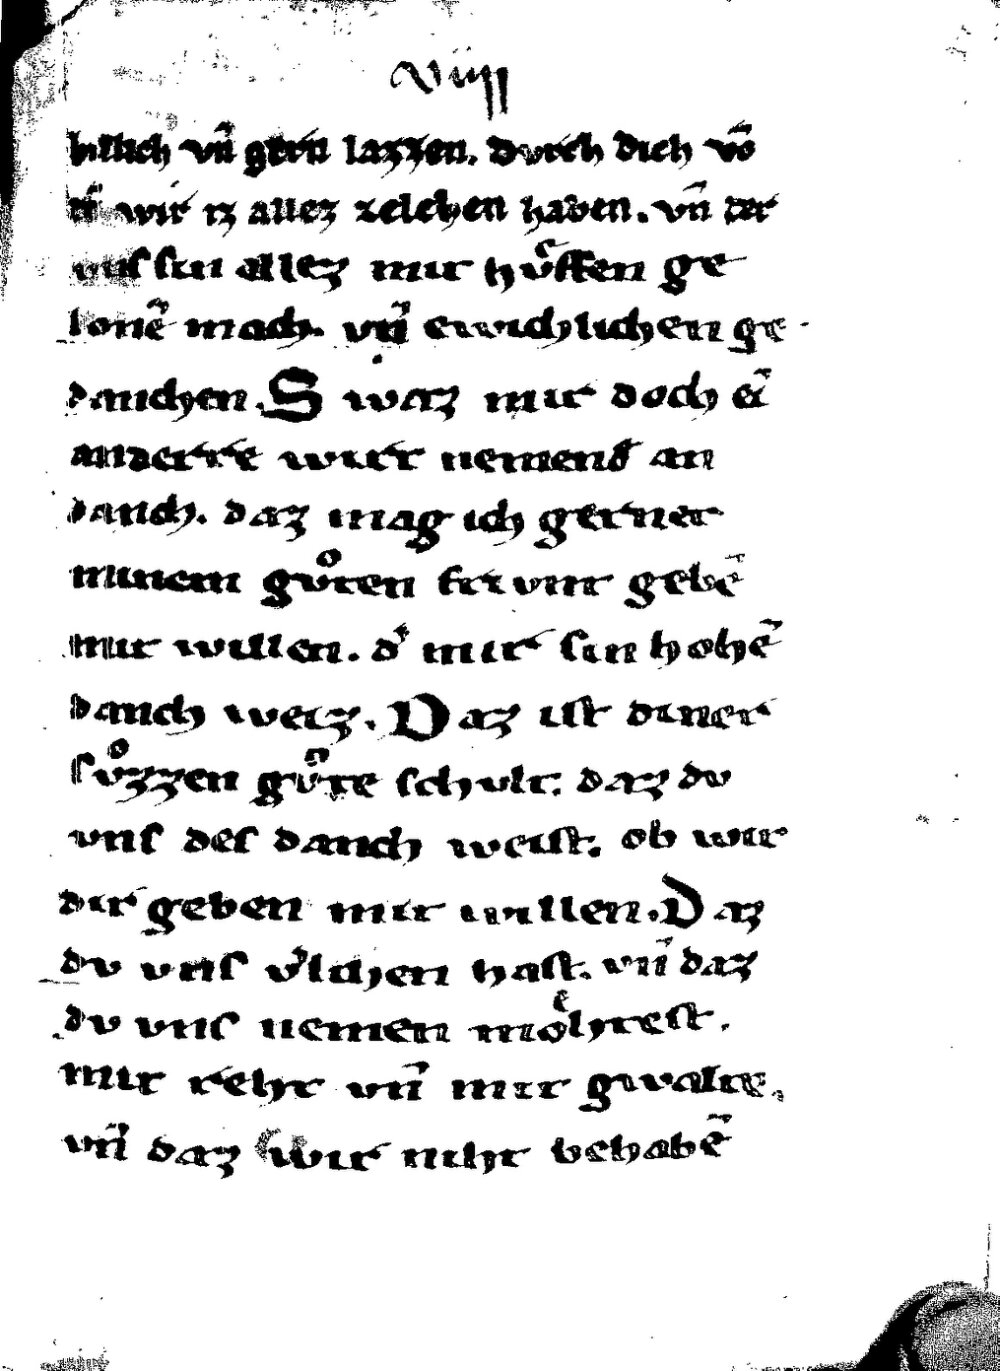 viiij
billich vn̄ gern lazzen. durch dich vō
d͛ wir iz allez zelehen haben. vn̄ der
uns sin allez mit hv̊ffen ge
lonē mach. vn̄ ewichlichen ge
danchen. Swaz mir doch eī
anderre wurt nemend͛ an
danch. daz mag ich gerner
minem gůten frivnt gebē
mit willen. d͛ mir sin hohē
danch weiz. Daz ist diner
sv̊zzen gv̊te schult. daz dv
vns des danch weist. ob wir
dir geben mit willen. Daz
dv vns v͛lihen hast. vn̄ daz
dv vns nemen moͤhtest.
mit reht vn̄ mit gwalte.
vn̄ daz wir niht behabē